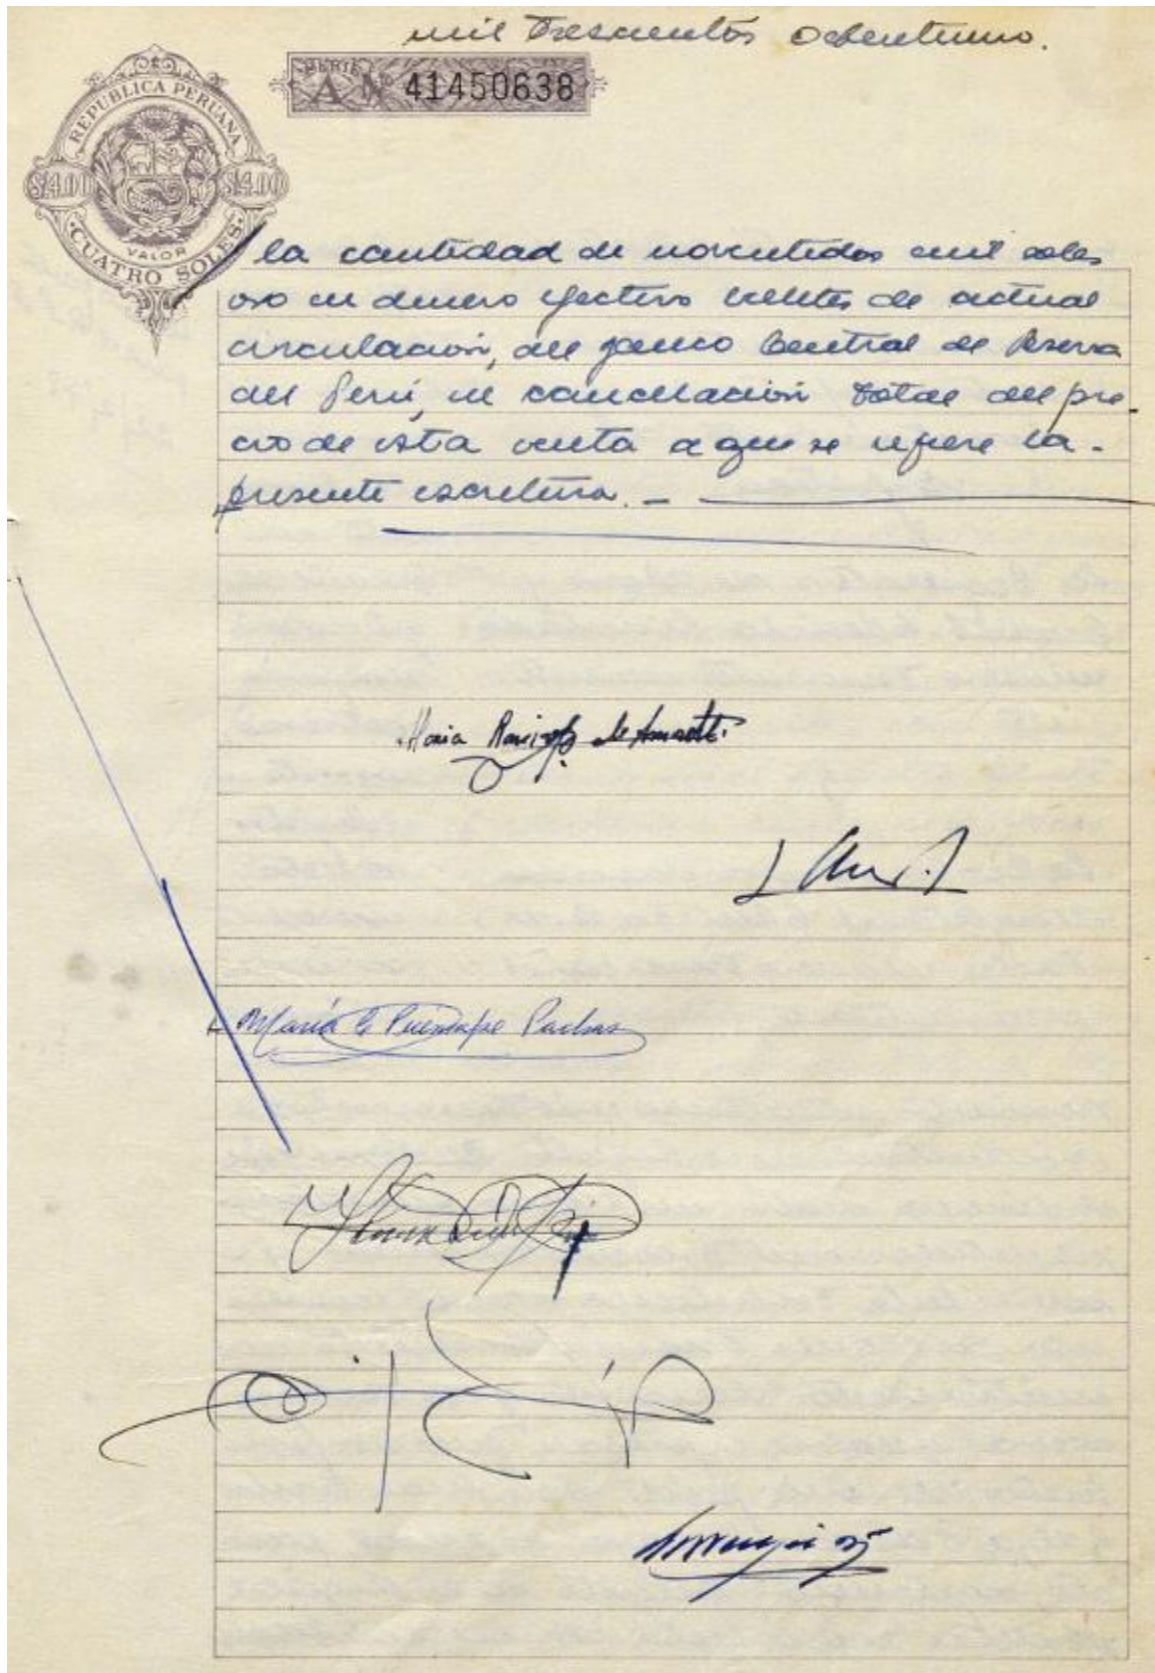 mil trescientos ochentiuno.
SERIE
A Nº 41450638
REPUBLICA PERUANA
S/4.00 S/4.00
VALOR
CUATRO SOLES
la cantidad de noventidos mil soles
oro en dinero efectivo billetes de actual
circulación, del Banco Central de Reserva
del Perú, en cancelación total del pre-
cio de esta venta a que se refiere la-
presente escritura. _
Maria Ramirez de
Maria E Puemape Pachas